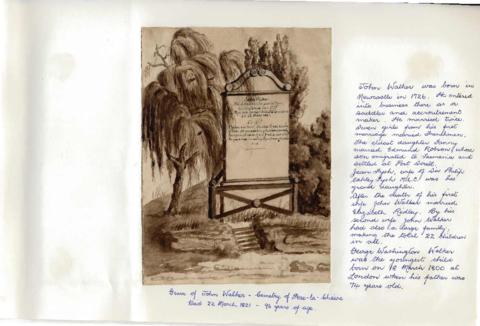 John Walker was born in
Newcastle in 1726. He entered
into business there as a
saddler and accoutrement
maker. He married twice.
Seven girls from his first
marriage married Frenchmen.
The eldest daughter
married Edmund Robson (whose
son emigrated to Tasmania and
settled at Port Sorell.
Jean Fysh, wife of Sir Philip
Oakley Fysh M.L.C) was his
grand daughter.
After the death of his first
wife John Walker married
Elizabeth Ridley. By his
second wife John Walker
had also a large family;
making the total 22 children
in all.
George Washington Walker
was the youngest child
born on 19 March 1800 at
London when his father was
74 years old.
Grave of John Walker - Cemetry of Pere-la-Chaise
Died 22 March 1821 - 96 years of age